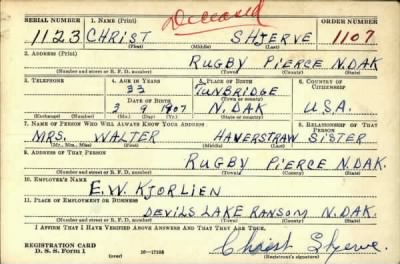 SERIAL NUMBER 1. NAME (Print) Deceased ORDER NUMBER
1123 CHRIST SHJERVE 1107
(First) (Middle) (Last)
2. ADDRESS (Print)
RUGBY PIERCE N.DAK
(Number and street or R. F. D. number) (Town) (County) (State)
3. TELEPHONE 4. AGE IN YEARS 5. PLACE OF BIRTH 6. COUNTRY OF CITIZENSHIP
33 TUNBRIDGE
DATE OF BIRTH (Town or county)
2 9 1907 N. DAK U.S.A.
(Exchange) (Number) (Mo.) (Day) (Yr.) (State or country)
7. NAME OF PERSON WHO WILL ALWAYS KNOW YOUR ADDRESS 8. RELATIONSHIP OF THAT PERSON
MRS. WALTER HAVERSTRAW SISTER
(Mr., Mrs., Miss) (First) (Middle) (Last)
9. ADDRESS OF THAT PERSON
RUGBY PIERCE N.DAK.
(Number and street or R. F. D. number) (Town) (County) (State)
10. EMPLOYER'S NAME
E.W. KJORLIEN
11. PLACE OF EMPLOYMENT OR BUSINESS
DEVILS LAKE RANSOM N. DAK.
(Number and street or R. F. D. number) (Town) (County) (State)
I AFFIRM THAT I HAVE VERIFIED ABOVE ANSWERS AND THAT THEY ARE TRUE.
REGISTRATION CARD
D. S. S. Form 1 (over) Christ Shjerve
(Registrant's signature)